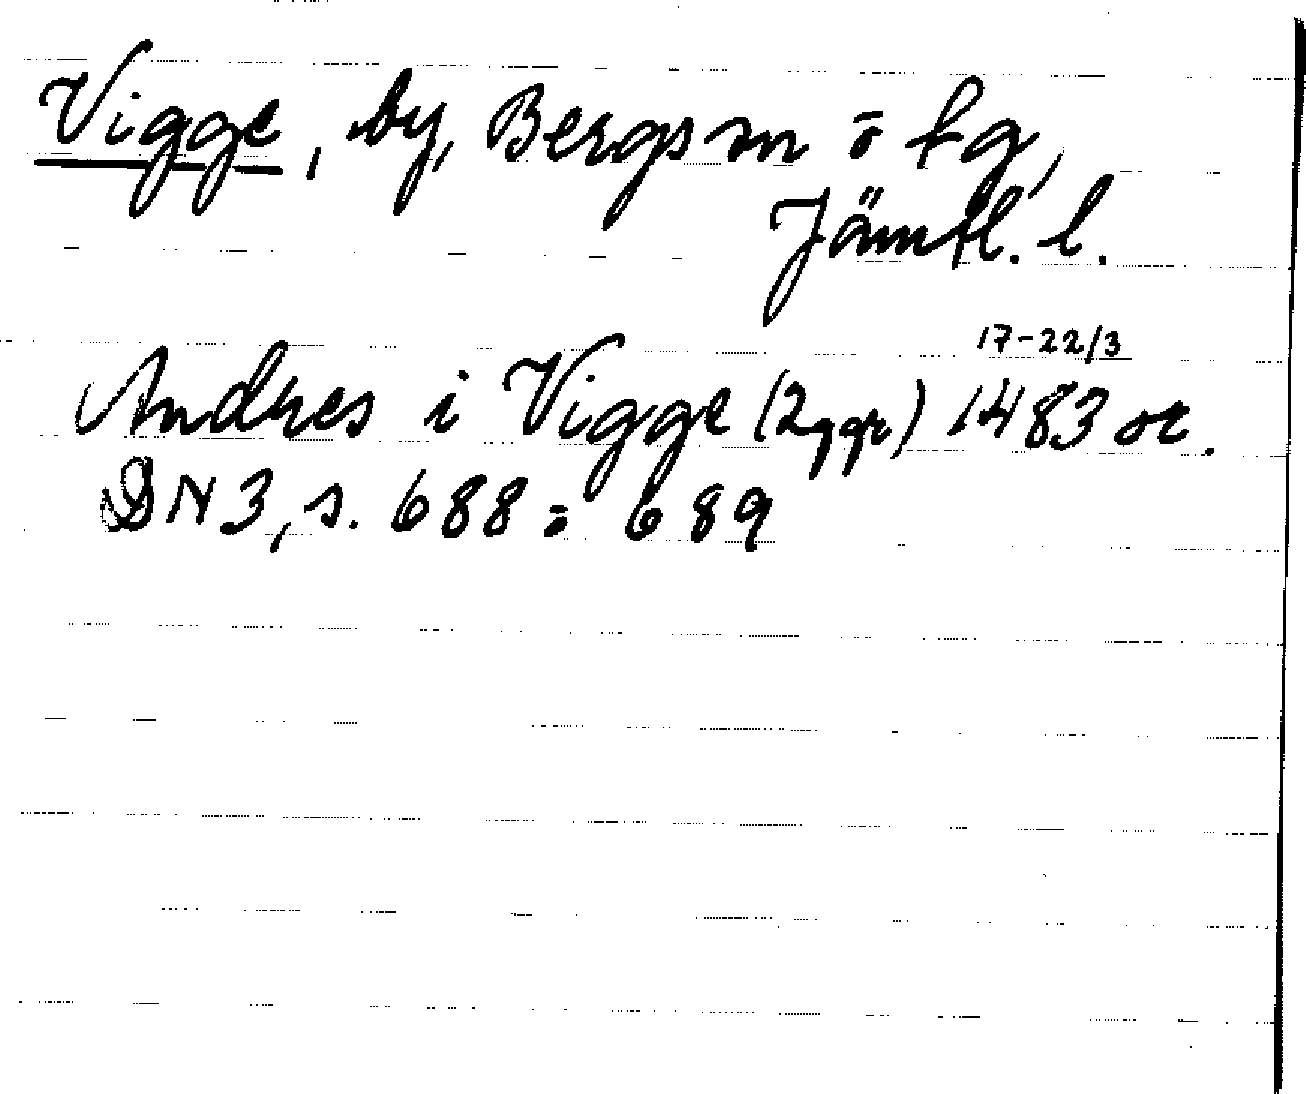 Vigge, by, Bergs sn o tg,
Jämtl. l.
17-22/3
Andres i Vigge (2 ggr) 1483 or.
DN 3, s. 688 o 689